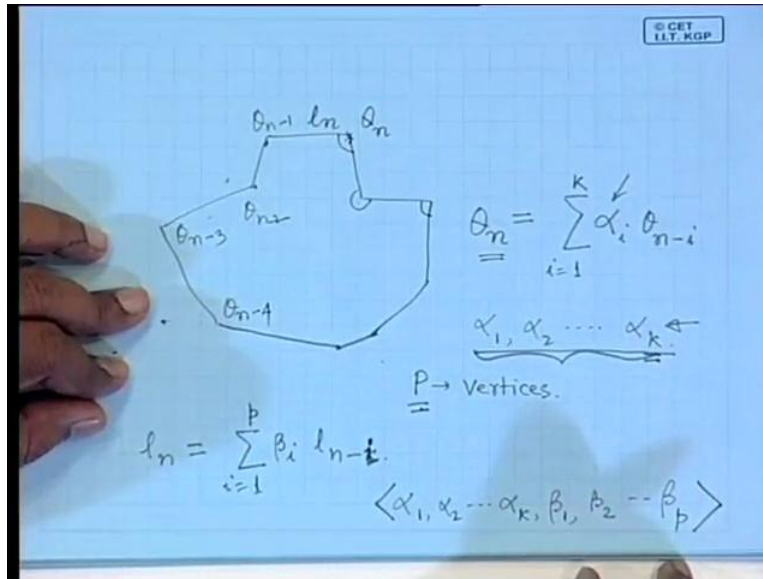 © CET
I.I.T. KGP
θn-1 ln θn
θn2
θn-3
θn-4
θn = Σ_{i=1}^{K} αi θn-i
α1, α2 .... αk ←
P → vertices.
ln = Σ_{i=1}^{p} βi ln-i.
<α1, α2 ... αk, β1, β2 -- βp>